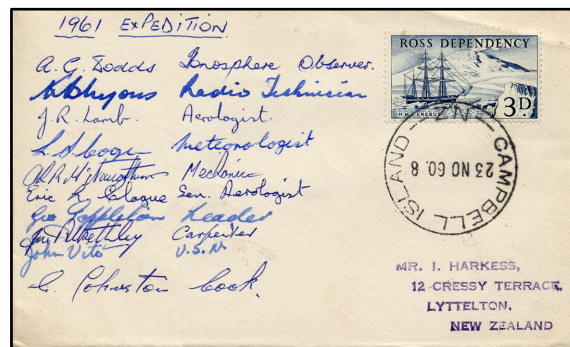 1961 EXPEDITION.
A. G. Dodds Ionosphere Observer.
Radio Technician
J. R. Lamb. Aerologist.
Meteorologist
Mechanic
Eric R. Sen. Aerologist
Geo Poppleton Leader
Carpenter
John Vito U.S.N.
C. Johnston Cook.
ROSS DEPENDENCY
H.M.S. EREBUS
3D.
CAMPBELL ISLAND - N.Z. -
23 NO 60. 8
MR. I. HARKESS,
12 CRESSY TERRACE,
LYTTELTON,
NEW ZEALAND